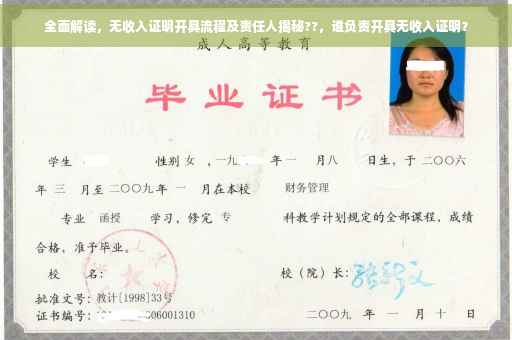 全面解读，无收入证明开具流程及责任人揭秘??，谁负责开具无收入证明?
成人高等教育
毕业证书
学生 性别 女 ，一九 年 一 月八 日生，于 二〇〇六
年 三 月至 二〇〇九 年 一 月在本校 财务管理
专业 函授 学习，修完 专 科教学计划规定的全部课程，成绩
合格，准予毕业。
校 名： 校（院）长：
批准文号：教计[1998]33号
证书编号： 06001310 二〇〇九 年 一 月 十 日